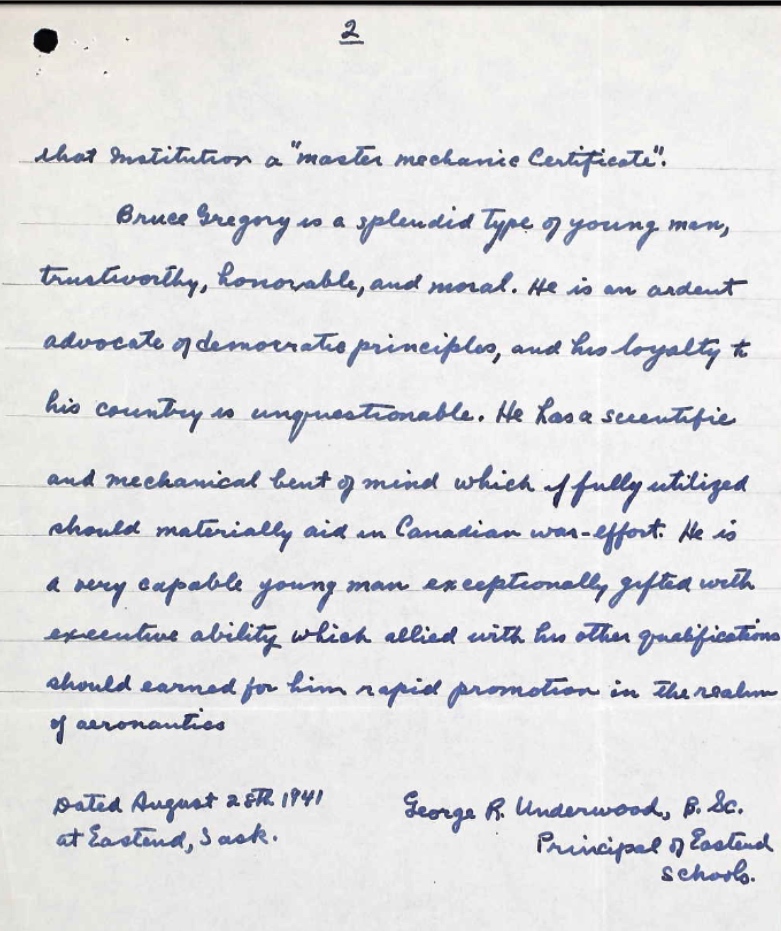 2
that Institution a "master mechanic Certificate".
Bruce Gregory is a splendid type of young man,
trustworthy, honorable, and moral. He is an ardent
advocate of democratic principles, and his loyalty to
his country is unquestionable. He has a scientific
and mechanical bent of mind which if fully utilized
should materially aid in Canadian war-effort. He is
a very capable young man exceptionally gifted with
executive ability which allied with his other qualifications
should earned for him rapid promotion in the realm
of aeronautics
Dated August 28th 1941
at Eastend, Sask.
George R. Underwood, B. Sc.
Principal of Eastend
Schools.